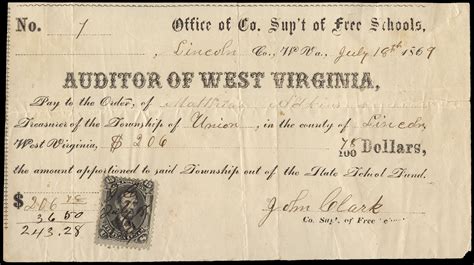 No. 7 Office of Co. Sup't of Free Schools,
Lincoln Co., W Va., July 18th 1869
AUDITOR OF WEST VIRGINIA,
Pay to the Order, of Matthew Adkins
Treasurer of the Township of Union, in the county of Lincoln
West Virginia, $ 206 78/100 Dollars,
the amount apportioned to said Township out of the State School Fund.
$ 206 78
36 50
243.28
John Clark
Co. Sup't. of Free